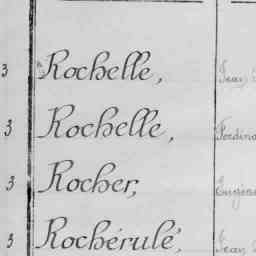 3 Rochelle, Jean
3 Rochelle, Ferdina
3 Rocher, Eugène
3 Rochérulé, Jean